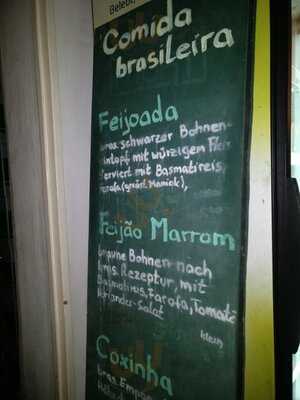 Beleb
Comida
brasileira
Feijoada
bras. schwarzer Bohnen-
eintopf mit würzigem
serviert mit Basmatireis,
Farofa (geröst. Maniok),
Feijão Marrom
braune Bohnen nach
bras. Rezeptur, mit
Basmatireis, Farofa, Tomate
Koriander-Salat
Coxinha
bras.